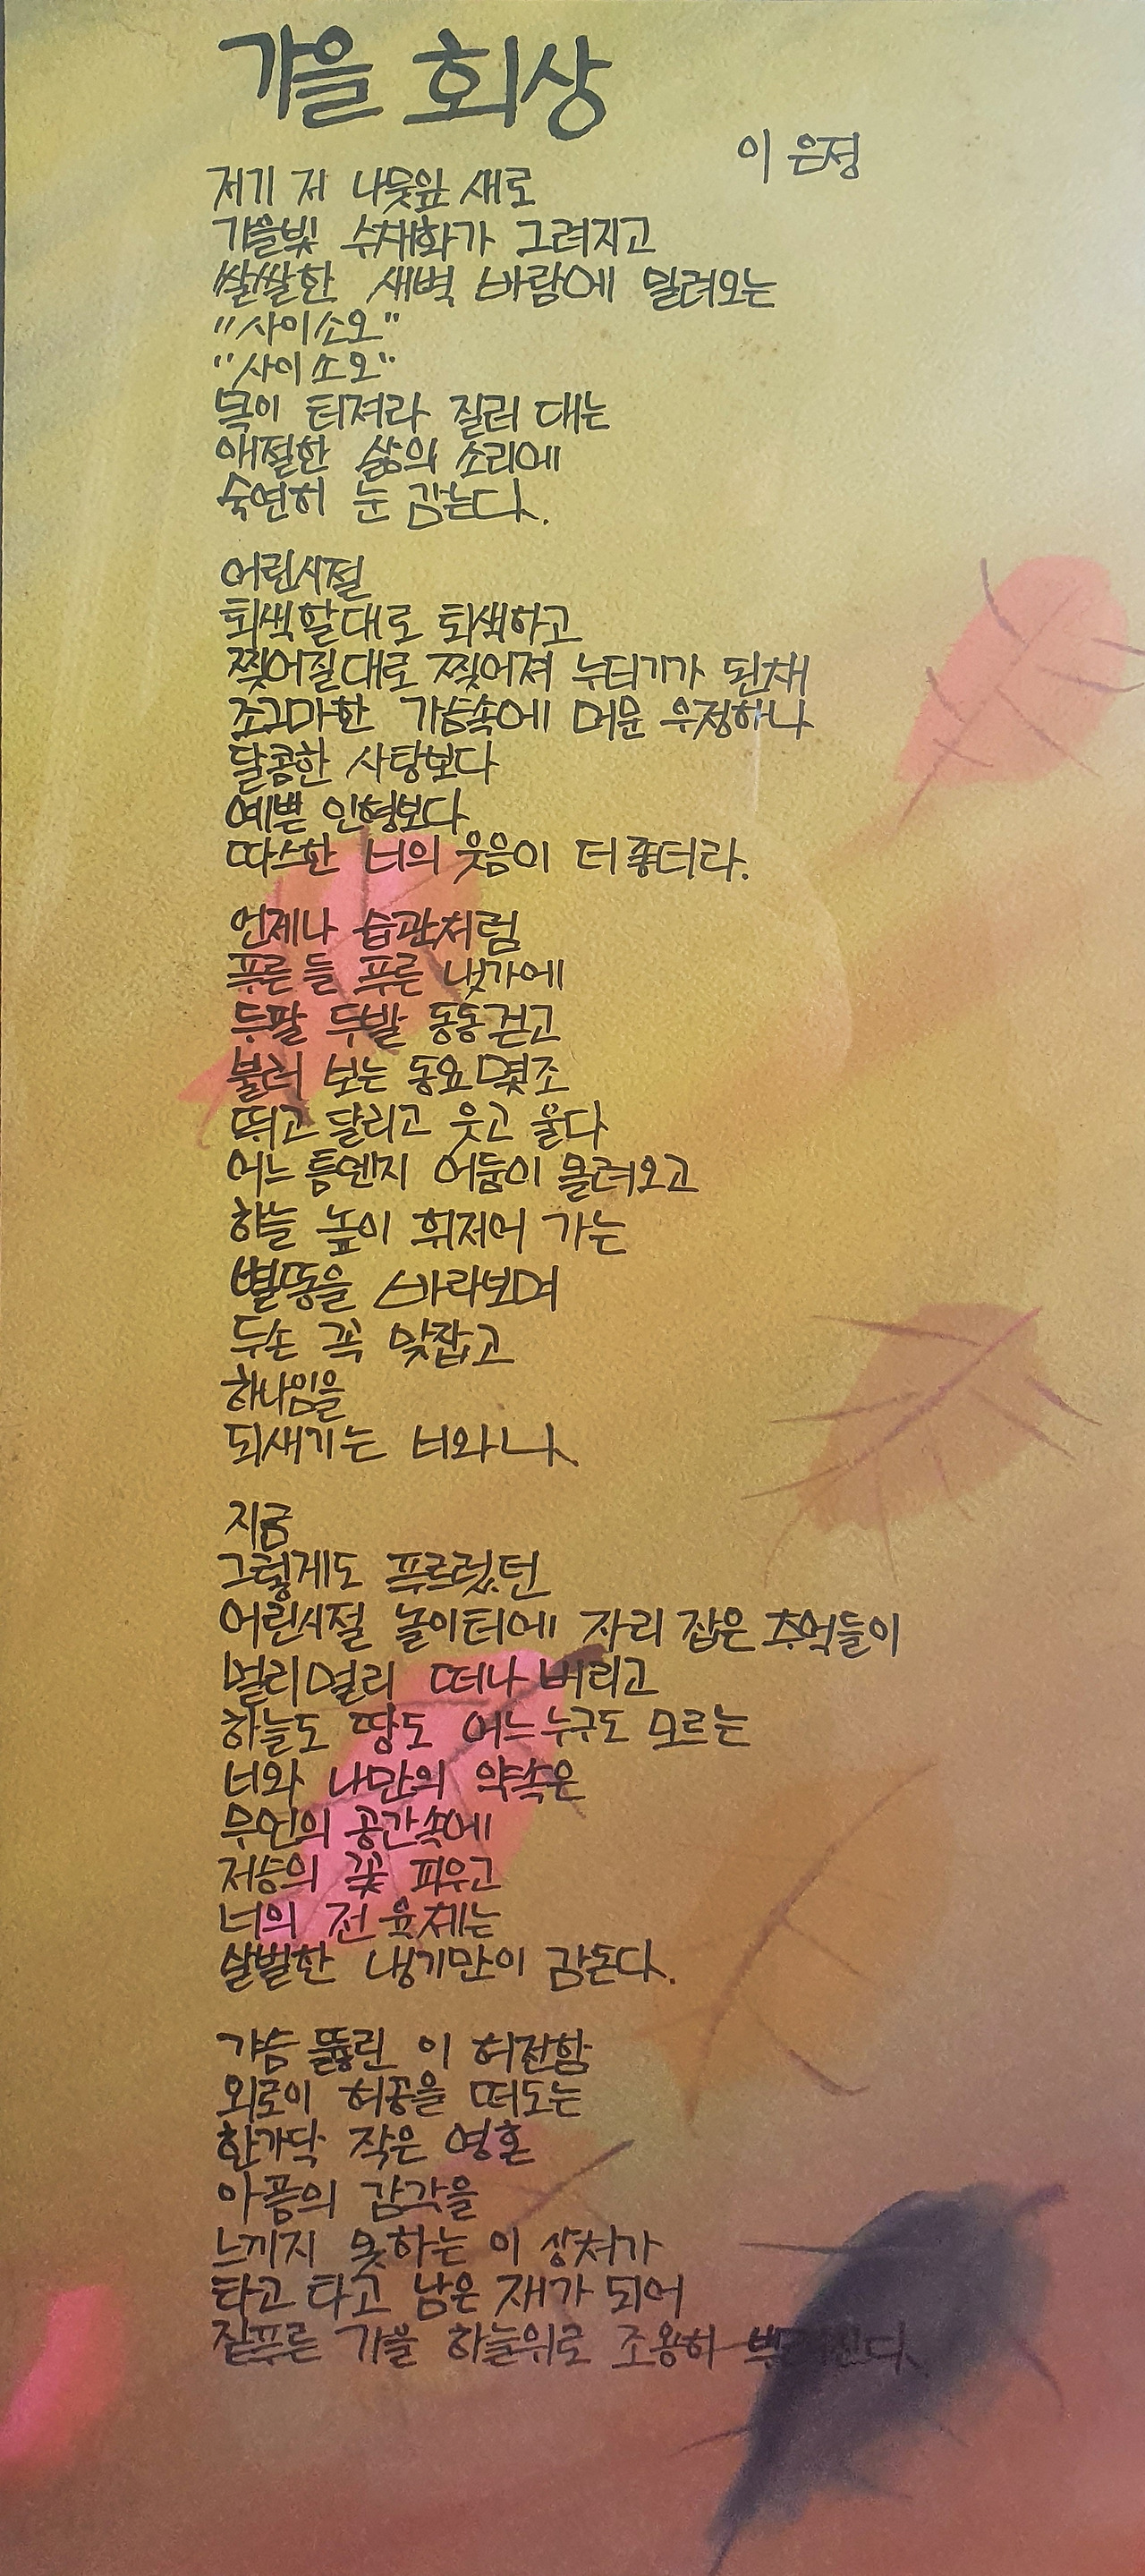 가을 회상
이 은정
저기 저 나뭇잎 새로
가을빛 수채화가 그려지고
쌀쌀한 새벽 바람에 밀려오는
"사이소오"
"사이소오"
목이 터져라 질러 대는
애절한 삶의 소리에
숙연히 눈 감는다.
어린시절
퇴색할대로 퇴색하고
찢어질대로 찢어져 누더기가 된채
조그마한 가슴속에 머문 우정하나
달콤한 사탕보다
예쁜 인형보다
따스한 너의 웃음이 더 좋더라.
언제나 습관처럼
푸른 들 푸른 냇가에
두팔 두발 동동걷고
불러 보는 동요몇조
뛰고 달리고 웃고 울다
어느 틈엔지 어둠이 몰려오고
하늘 높이 휘저어 가는
별똥을 바라보며
두손 꼭 맞잡고
하나임을
되새기는 너와 나.
지금
그렇게도 푸르렀던
어린시절 놀이터에 자리 잡은 추억들이
멀리멀리 떠나 버리고
하늘도 땅도 어느누구도 모르는
너와 나만의 약속은
무언의 공간속에
저승의 꽃 피우고
너의 전 육체는
살벌한 냉기만이 감돈다.
가슴 뚫린 이 허전함
외로이 허공을 떠도는
한가닥 작은 영혼
아픔의 감각을
느끼지 못하는 이 상처가
타고 타고 남은 재가 되어
짙푸른 가을 하늘위로 조용히